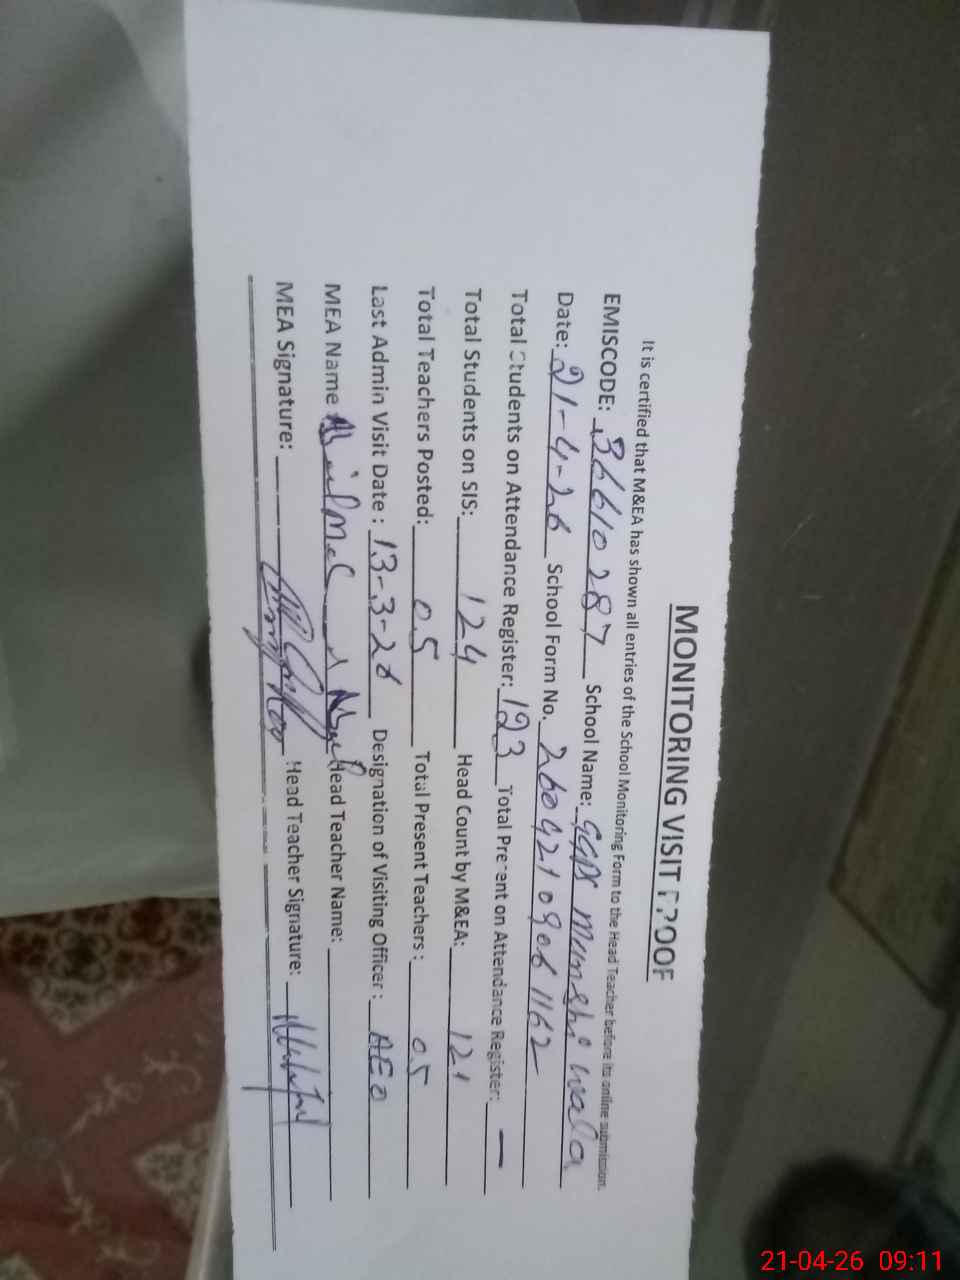 MONITORING VISIT PROOF
It is certified that M&EA has shown all entries of the School Monitoring Form to the Head Teacher before its online submission.
EMISCODE: 36610287 School Name: GGPS Munshi wala
Date: 21-4-26 School Form No. 26042109061162
Total Students on Attendance Register: 123 Total Present on Attendance Register: —
Total Students on SIS: 124 Head Count by M&EA: 121
Total Teachers Posted: 05 Total Present Teachers: 05
Last Admin Visit Date: 13-3-26 Designation of Visiting Officer: AEO
MEA Name Head Teacher Name:
MEA Signature: Head Teacher Signature:
21-04-26 09:11